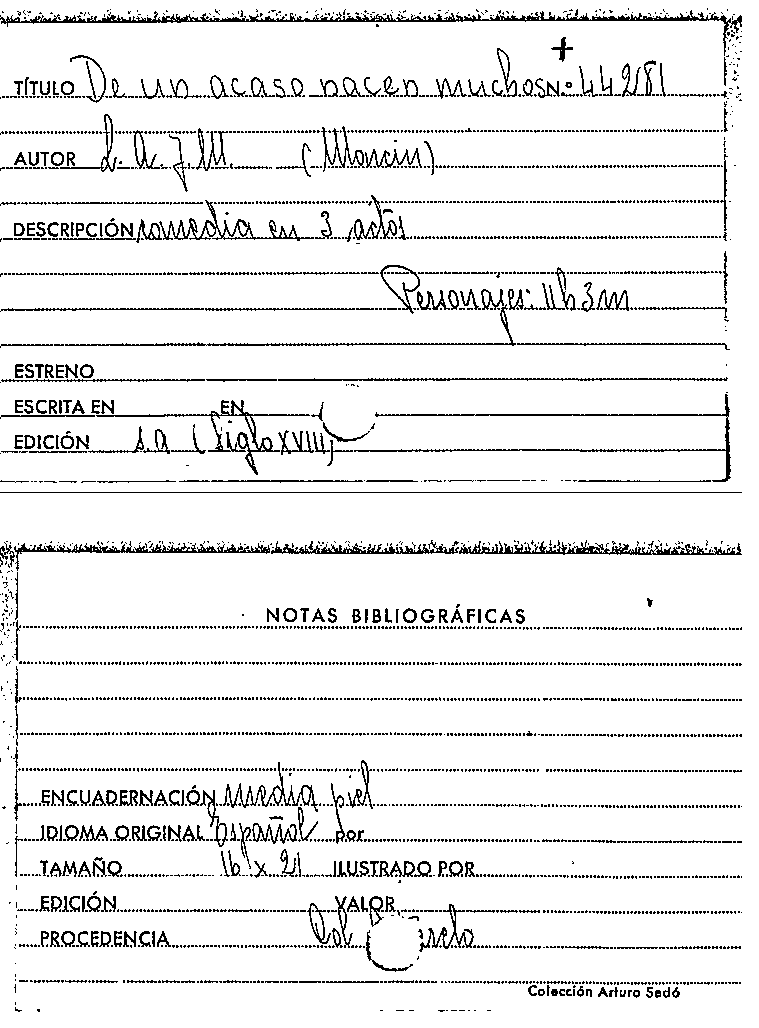 TÍTULO De un acaso nacen muchos N.º 44281
AUTOR L. A. J. M. (Moncin)
DESCRIPCIÓN comedia en 3 actos
Personajes: 11 h 3 m
ESTRENO
ESCRITA EN EN
EDICIÓN s.a (Siglo XVIII)
NOTAS BIBLIOGRÁFICAS
ENCUADERNACIÓN media piel
IDIOMA ORIGINAL Español por
TAMAÑO 16 x 21 ILUSTRADO POR
EDICIÓN VALOR
PROCEDENCIA
Colección Arturo Sedó